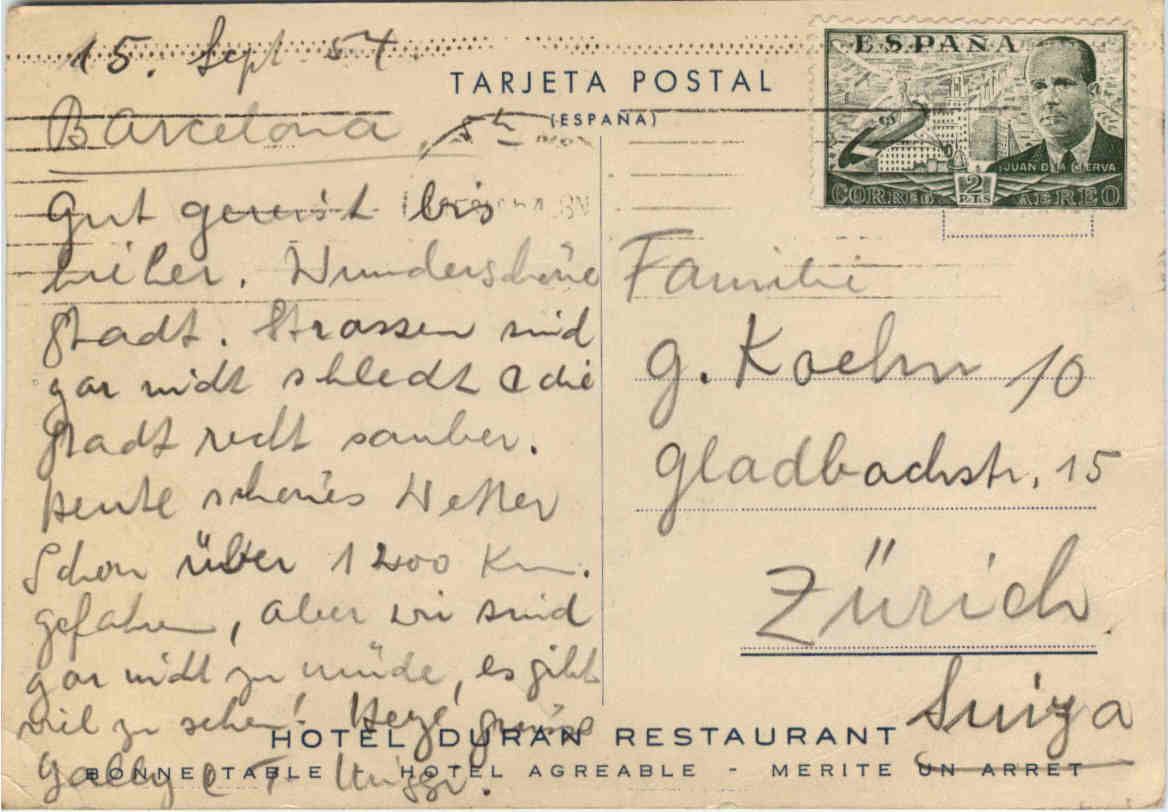 15. Sept 54.
Barcelona
Gut gereist bis
hieher. Wunderschöne
Stadt. Strassen sind
gar nicht schlecht & die
Stadt recht sauber.
Heute schönes Wetter
Schon über 1200 Km.
gefahren, aber wir sind
gar nicht zu müde, es gibt
viel zu sehen! Herzl. grüsse
Gally & F
TARJETA POSTAL
(ESPAÑA)
ESPAÑA
JUAN DE LA CIERVA
CORREO 2 PTS AEREO
Familie
G. Koehn 10
Gladbachstr. 15
Zürich
Suiza
HOTEL DURAN RESTAURANT
BONNE TABLE - HOTEL AGREABLE - MERITE UN ARRET